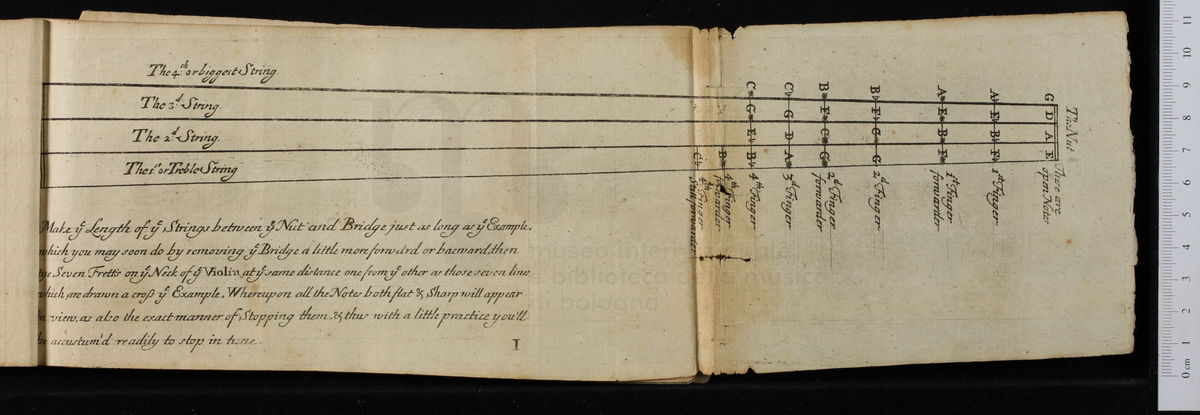 The 4.th or biggest String.
The 3.d String.
The 2.d String.
The 1.st or Treble String
The Nut
G D A E These are open Notes
A♭ E♭ B♭ F♮ 1st Finger
A♮ E♮ B♮ F♯ 1st Finger forwarder
B♭ F♮ C♮ G 2d Finger
B♮ F♯ C♯ G♯ 2d Finger forwarder
C♮ G D A♮ 3d Finger
C♯ G♯ E♭ B♭ 4th Finger
B♮ 4th Finger forwarder
C♮ 4th Finger Still forwarder
Make ye Length of ye Strings between ye Nut and Bridge just as long as ye Example,
which you may soon do by removing ye Bridge a little more forward or backward, then
tye Seven Fretts on ye Neck of ye Violin at ye same distance one from ye other as those seven lines
which are drawn a cross ye Example, Whereupon all the Notes both flat & Sharp will appear
in view, as also the exact manner of Stopping them, & thus with a little practice you'll
be accustum'd readily to stop in tune.
1
museo internazionale
e biblioteca della musica
di bologna
0 cm 1 2 3 4 5 6 7 8 9 10 11